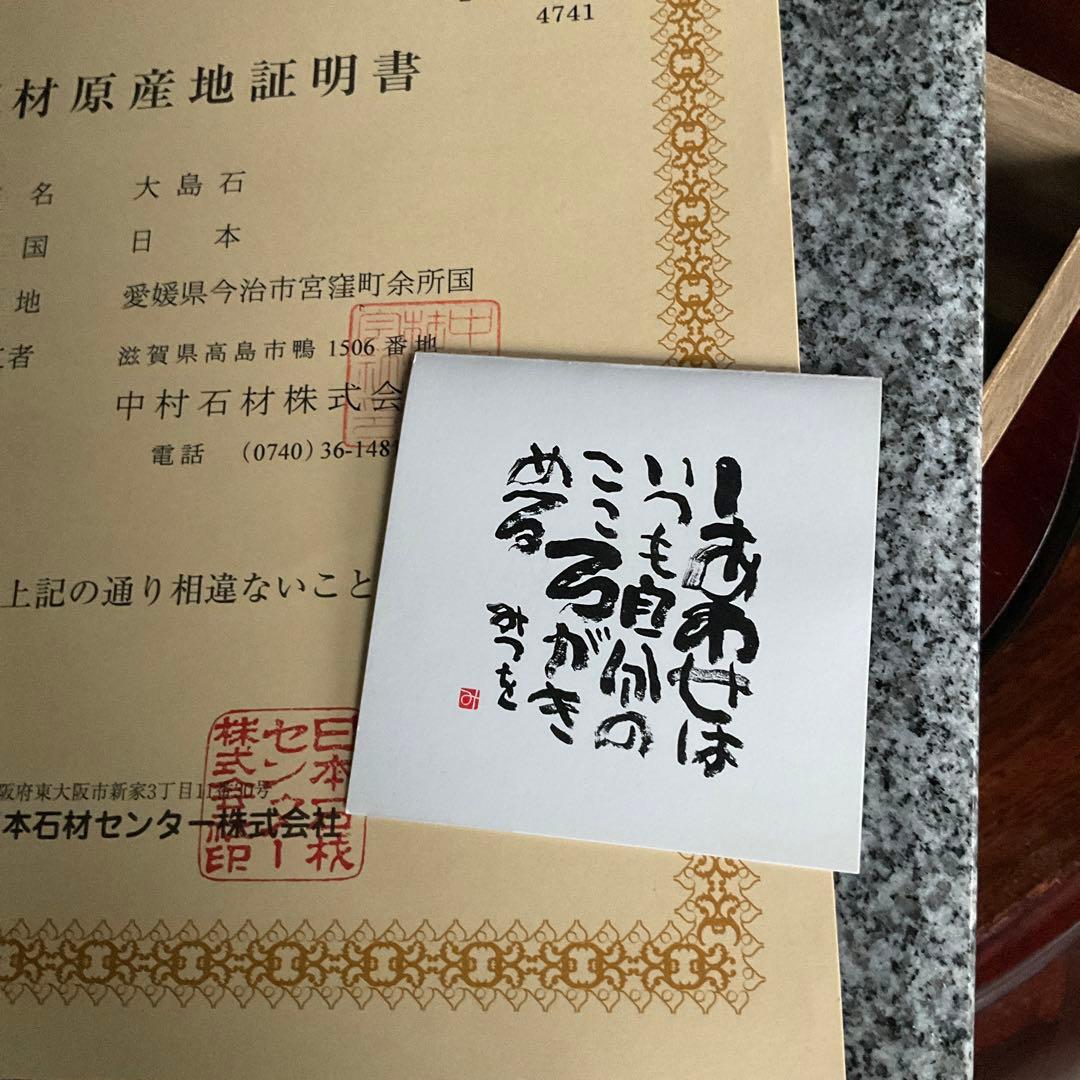 4741
材原産地証明書
名 大島石
国 日本
地 愛媛県今治市宮窪町余所国
者 滋賀県高島市鴨1506番地
中村石材株式会
電話 (0740)36-1481
上記の通り相違ないこと
阪府東大阪市新家3丁目11
本石材センター株式会社
日本石材
センター
株式会社印
しあわせは
いつも自分の
こころがき
める
みつを
み